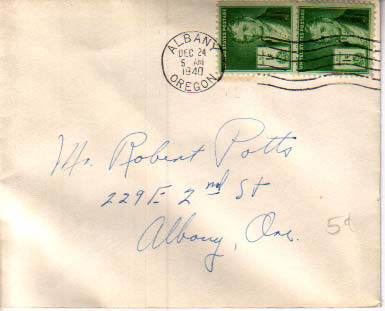 ALBANY
DEC 24
5 AM
1940
OREGON
Mr. Robert Potts
229 E 2nd St
Albany, Ore.
5¢